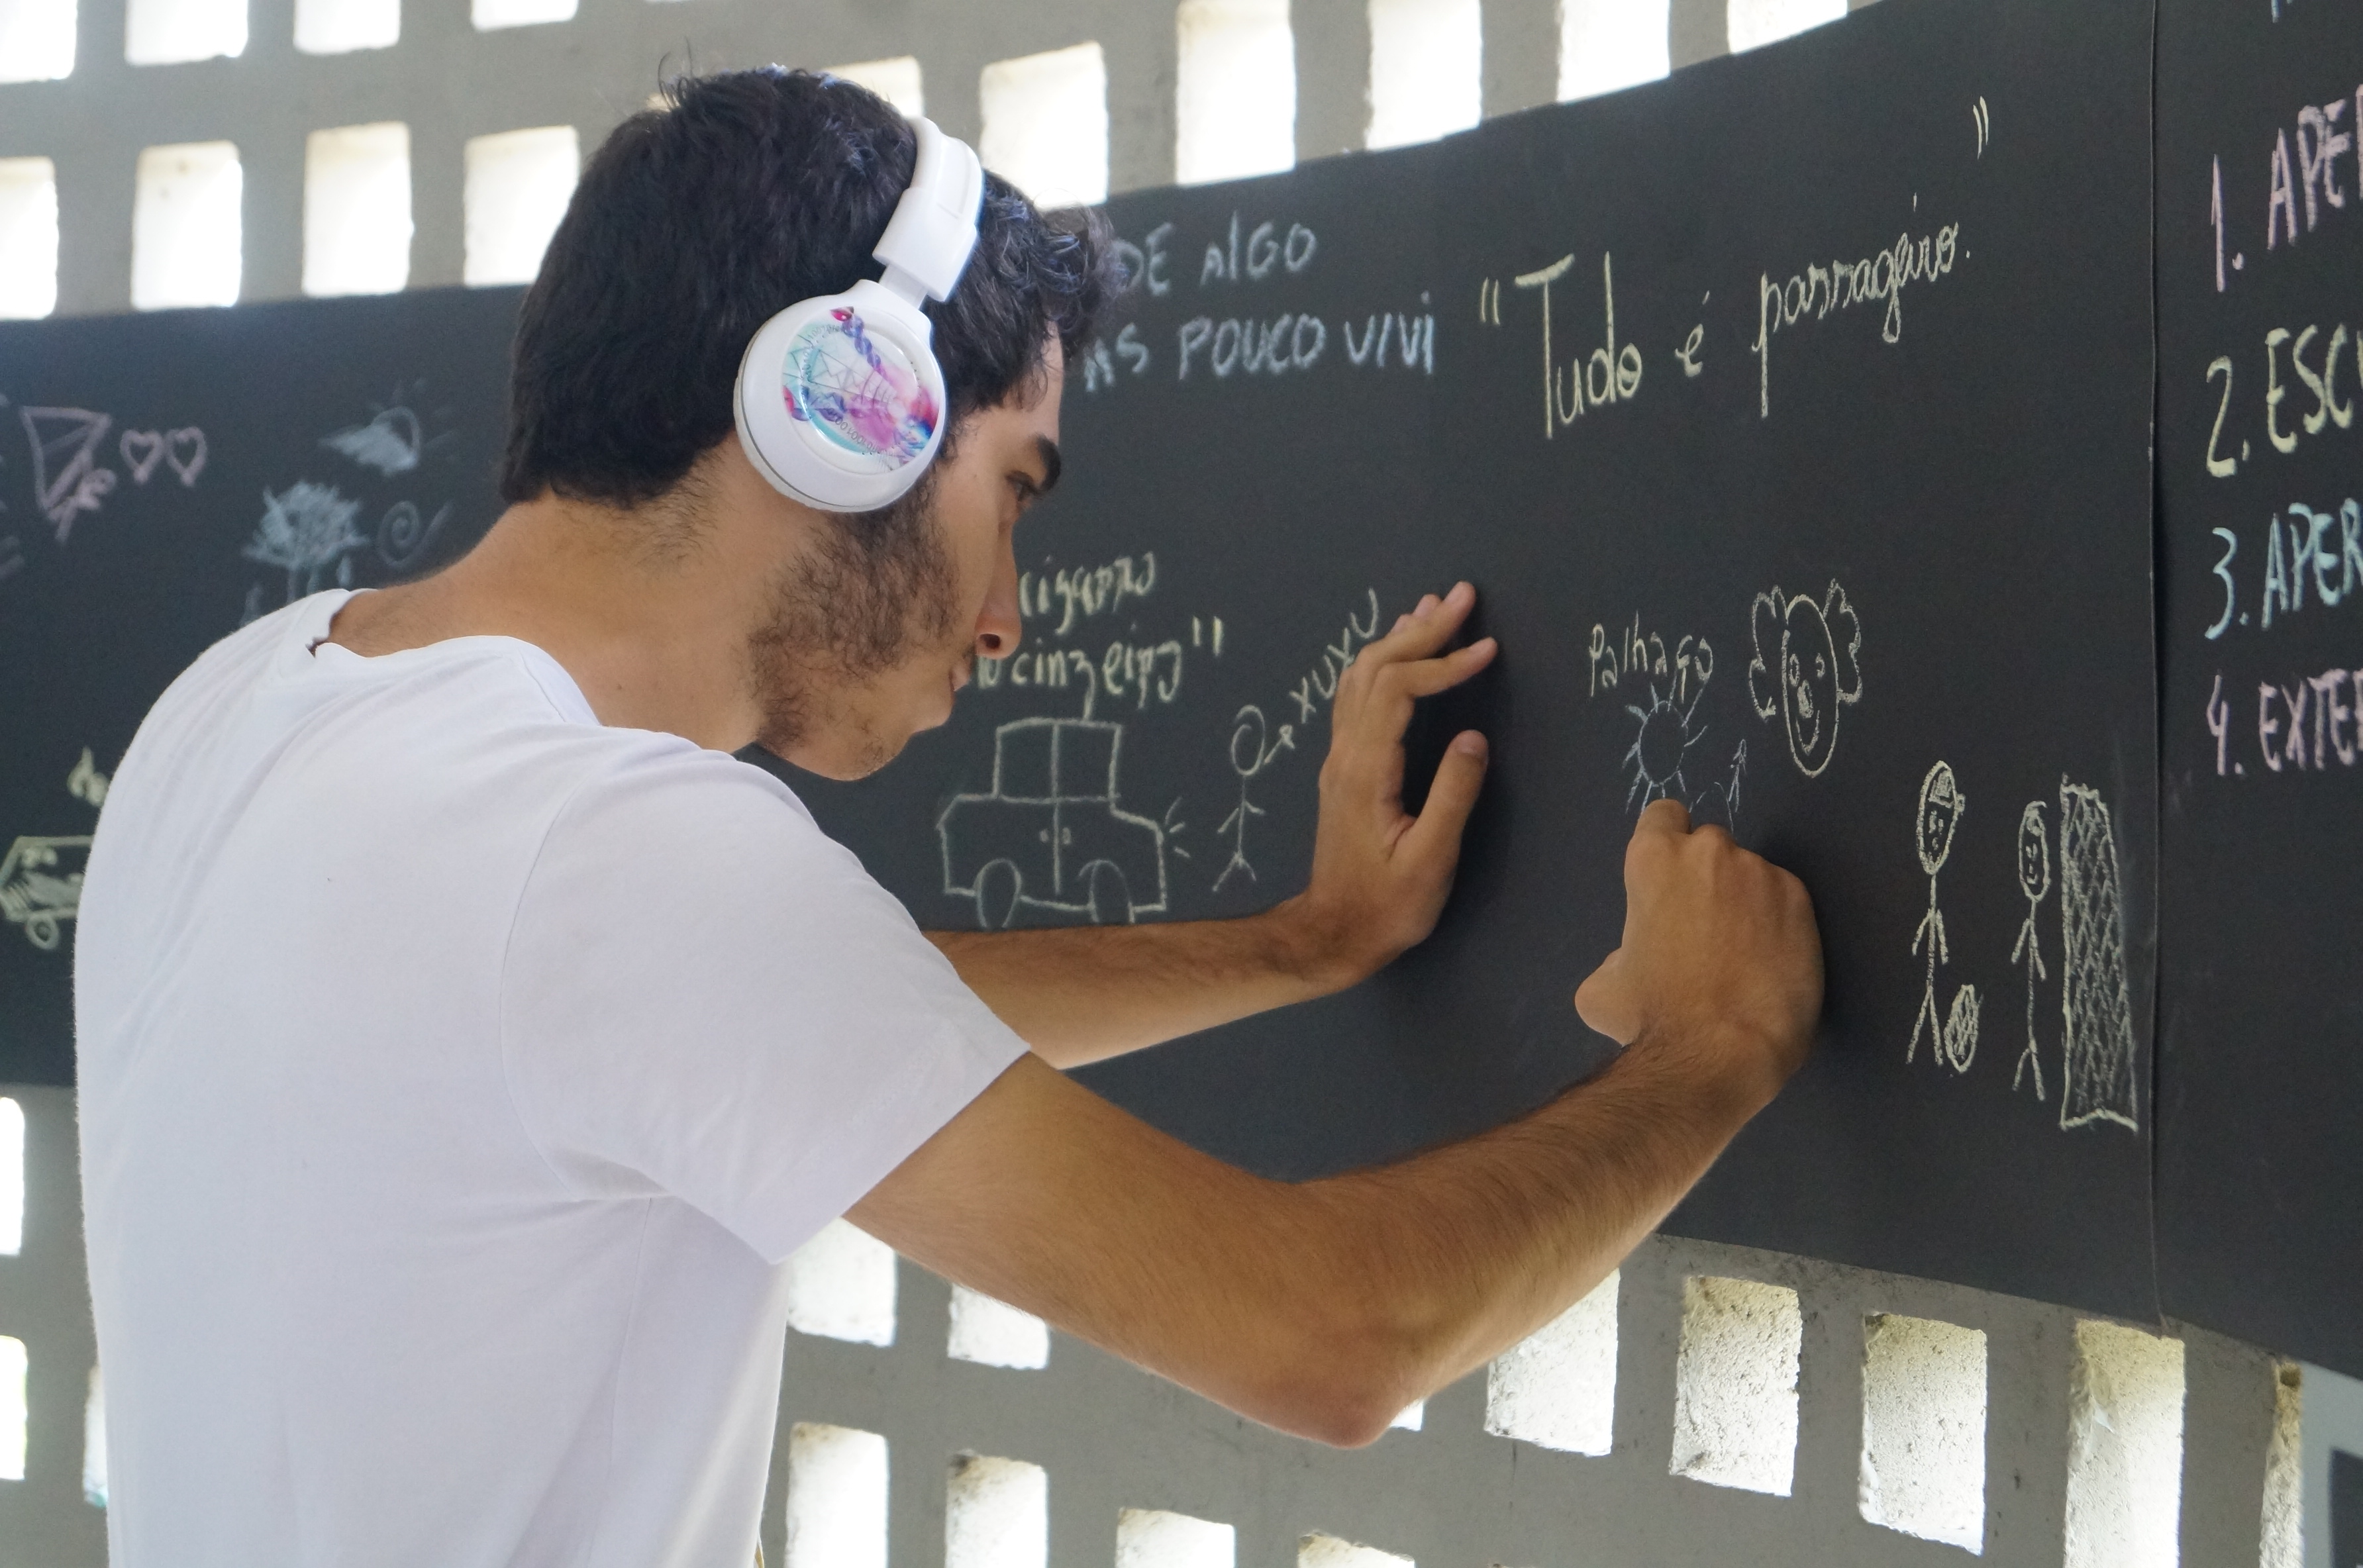 DE AlGO
POUCO VIVI
"Tudo é passageiro."
cigarro
cinzeiro"
XUXU
Palhaço
1. APE
2. ESC
3. APER
4. EXTE